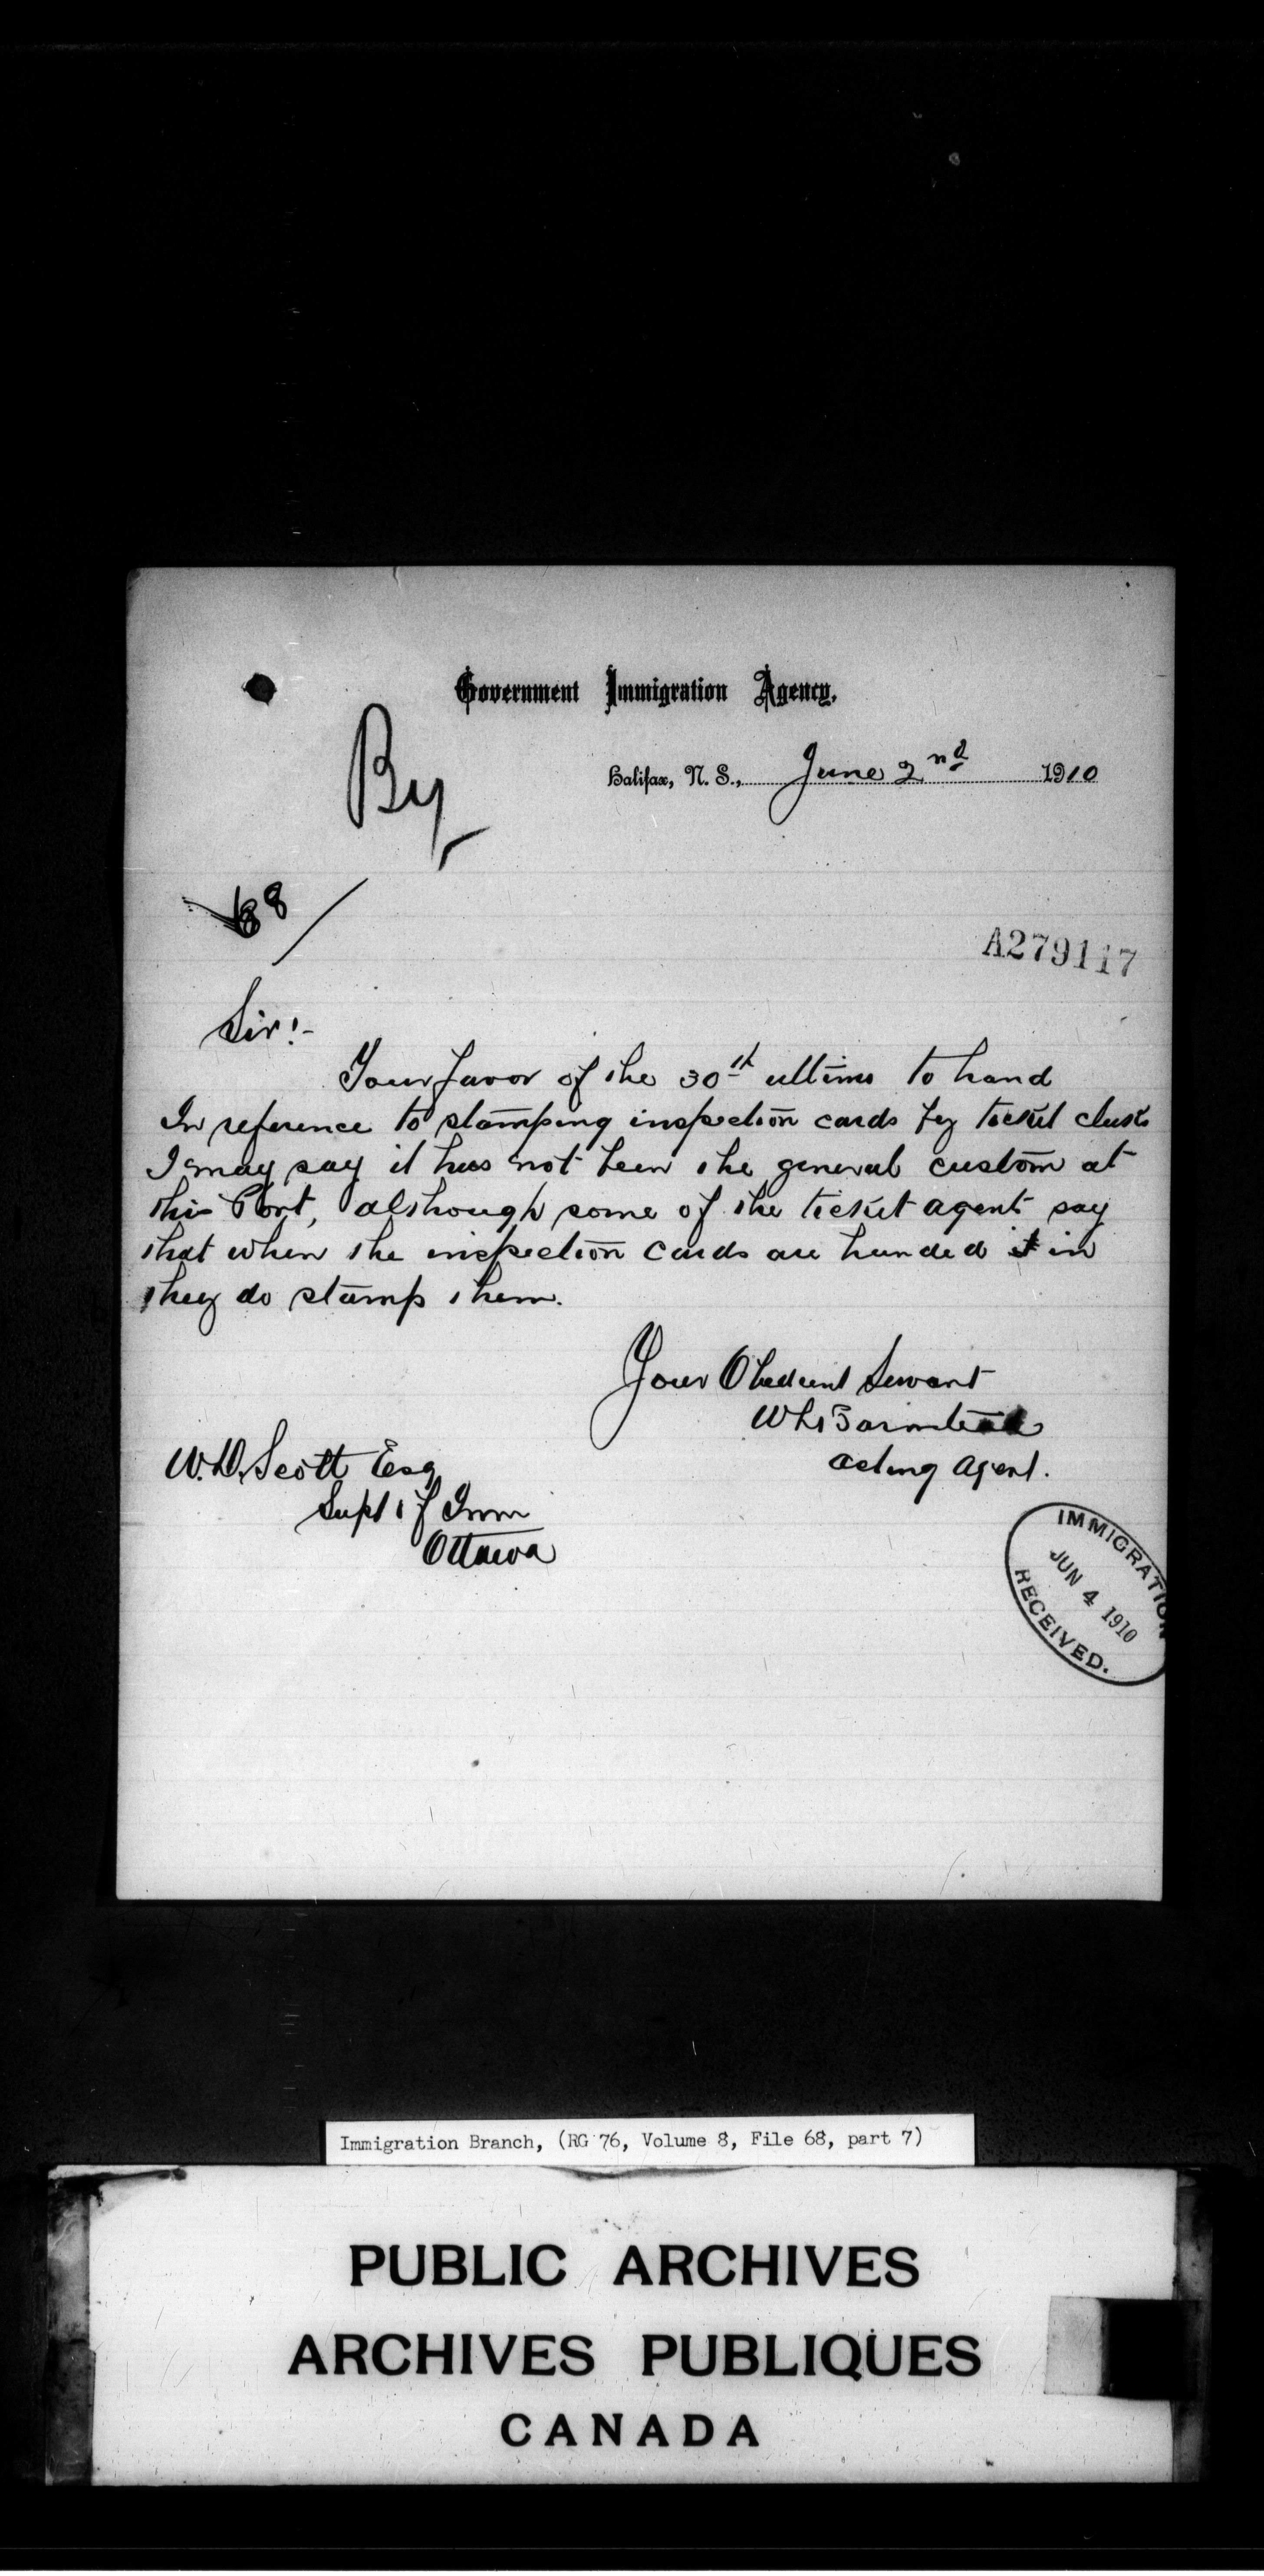 Government Immigration Agency.
By
Halifax, N. S., June 2nd 1910
68
A279117
Sir!-
Your favor of the 30th ultimo to hand
In reference to stamping inspection cards by ticket clerks
I may say it has not been the general custom at
this Port, although some of the ticket agents say
that when the inspection cards are handed in
they do stamp them.
Your Obedient Servant
W L Barnstead
Acting Agent.
W. D. Scott Esq
Supt of Imm
Ottawa
IMMIGRATION
JUN 4 1910
RECEIVED.
Immigration Branch, (RG 76, Volume 8, File 68, part 7)
PUBLIC ARCHIVES
ARCHIVES PUBLIQUES
CANADA